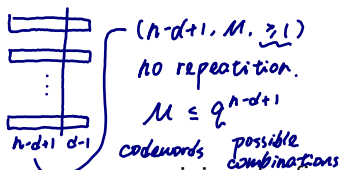 (n-d+1, M, ≥1)
no repeatition.
M ≤ q^{n-d+1}
n-d+1 d-1 codewords possible
combinations